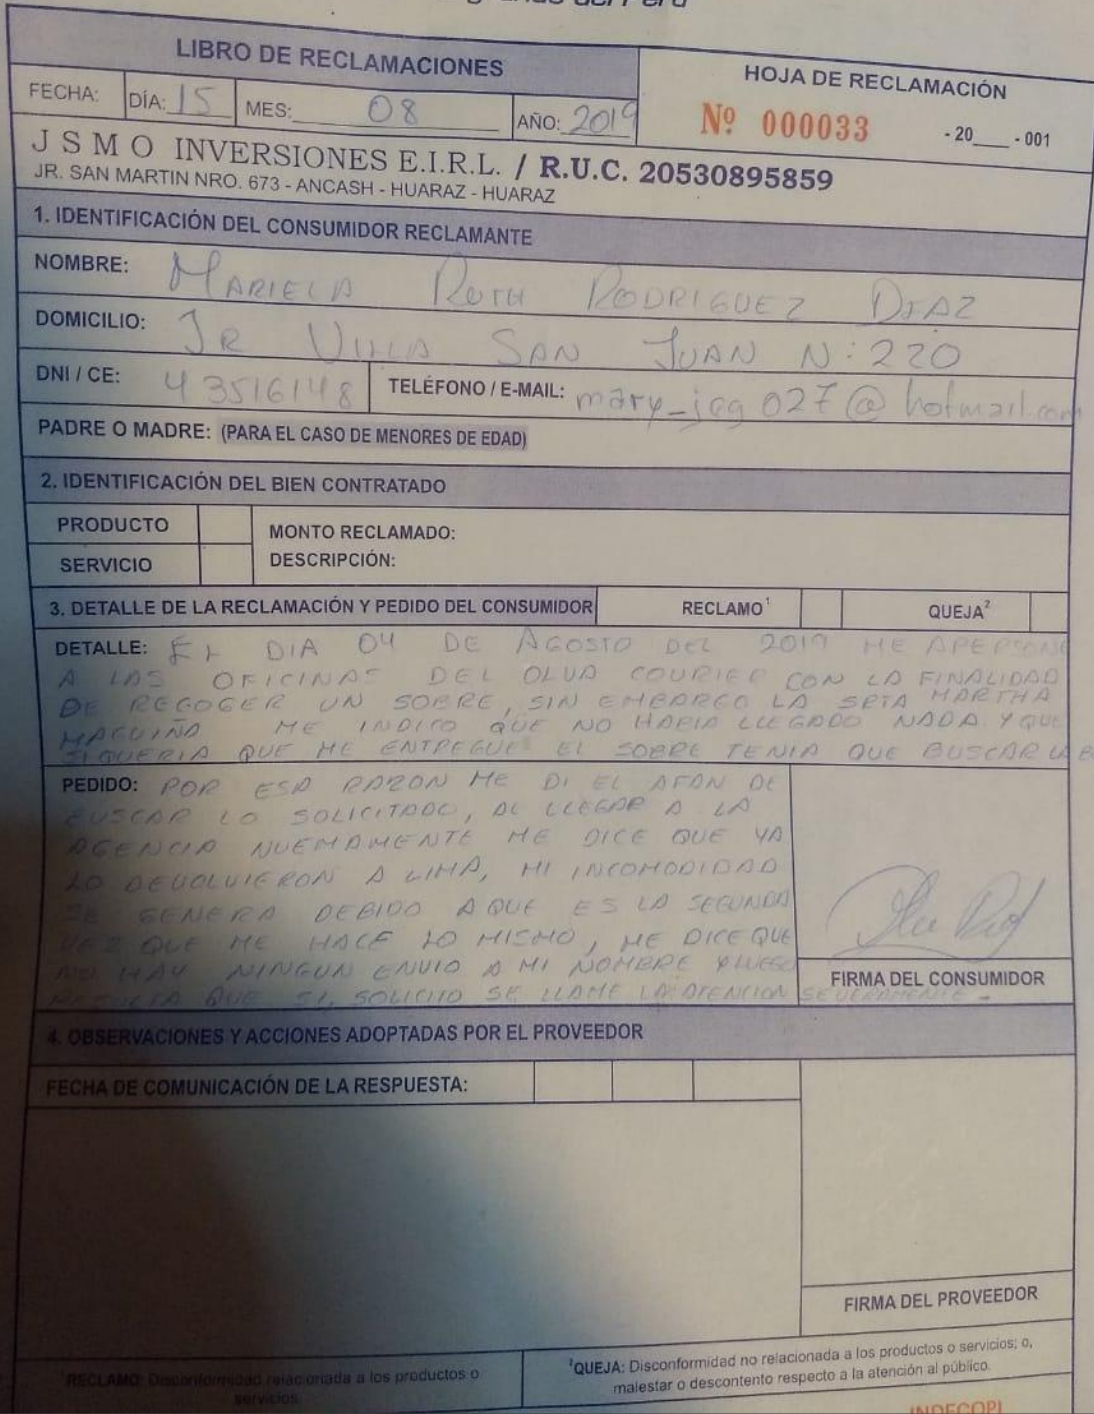 LIBRO DE RECLAMACIONES
HOJA DE RECLAMACIÓN
FECHA: DÍA: 15 MES: 08 AÑO: 2019
Nº 000033 - 20___ - 001
J S M O INVERSIONES E.I.R.L. / R.U.C. 20530895859
JR. SAN MARTIN NRO. 673 - ANCASH - HUARAZ - HUARAZ
1. IDENTIFICACIÓN DEL CONSUMIDOR RECLAMANTE
NOMBRE: MARIELA RUTH RODRIGUEZ DIAZ
DOMICILIO: JR VILLA SAN JUAN N: 220
DNI / CE: 43516148 TELÉFONO / E-MAIL: mary_jag027@hotmail.com
PADRE O MADRE: (PARA EL CASO DE MENORES DE EDAD)
2. IDENTIFICACIÓN DEL BIEN CONTRATADO
PRODUCTO MONTO RECLAMADO:
SERVICIO DESCRIPCIÓN:
3. DETALLE DE LA RECLAMACIÓN Y PEDIDO DEL CONSUMIDOR RECLAMO¹ QUEJA²
DETALLE: EL DIA 04 DE AGOSTO DEL 2019 ME APERSONE
A LAS OFICINAS DEL OLVA COURIER CON LA FINALIDAD
DE RECOGER UN SOBRE, SIN EMBARGO LA SRTA MARTHA
MAGUIÑA ME INDICO QUE NO HABIA LLEGADO NADA Y QUE
SI QUERIA QUE ME ENTREGUE EL SOBRE TENIA QUE BUSCAR LA
PEDIDO: POR ESA RAZON ME DI EL AFAN DE
BUSCAR LO SOLICITADO, AL LLEGAR A LA
AGENCIA NUEMAMENTE ME DICE QUE YA
LO DEVOLVIERON A LIMA, MI INCOMODIDAD
SE GENERA DEBIDO A QUE ES LA SEGUNDA
VEZ QUE ME HACE LO MISMO, ME DICE QUE
NO HAY NINGUN ENVIO A MI NOMBRE Y LUEGO
RESULTA QUE SI, SOLICITO SE LLAME LA ATENCION SEVERAMENTE.
FIRMA DEL CONSUMIDOR
4. OBSERVACIONES Y ACCIONES ADOPTADAS POR EL PROVEEDOR
FECHA DE COMUNICACIÓN DE LA RESPUESTA:
FIRMA DEL PROVEEDOR
¹RECLAMO: Disconformidad relacionada a los productos o
servicios.
²QUEJA: Disconformidad no relacionada a los productos o servicios; o,
malestar o descontento respecto a la atención al público.
INDECOPI